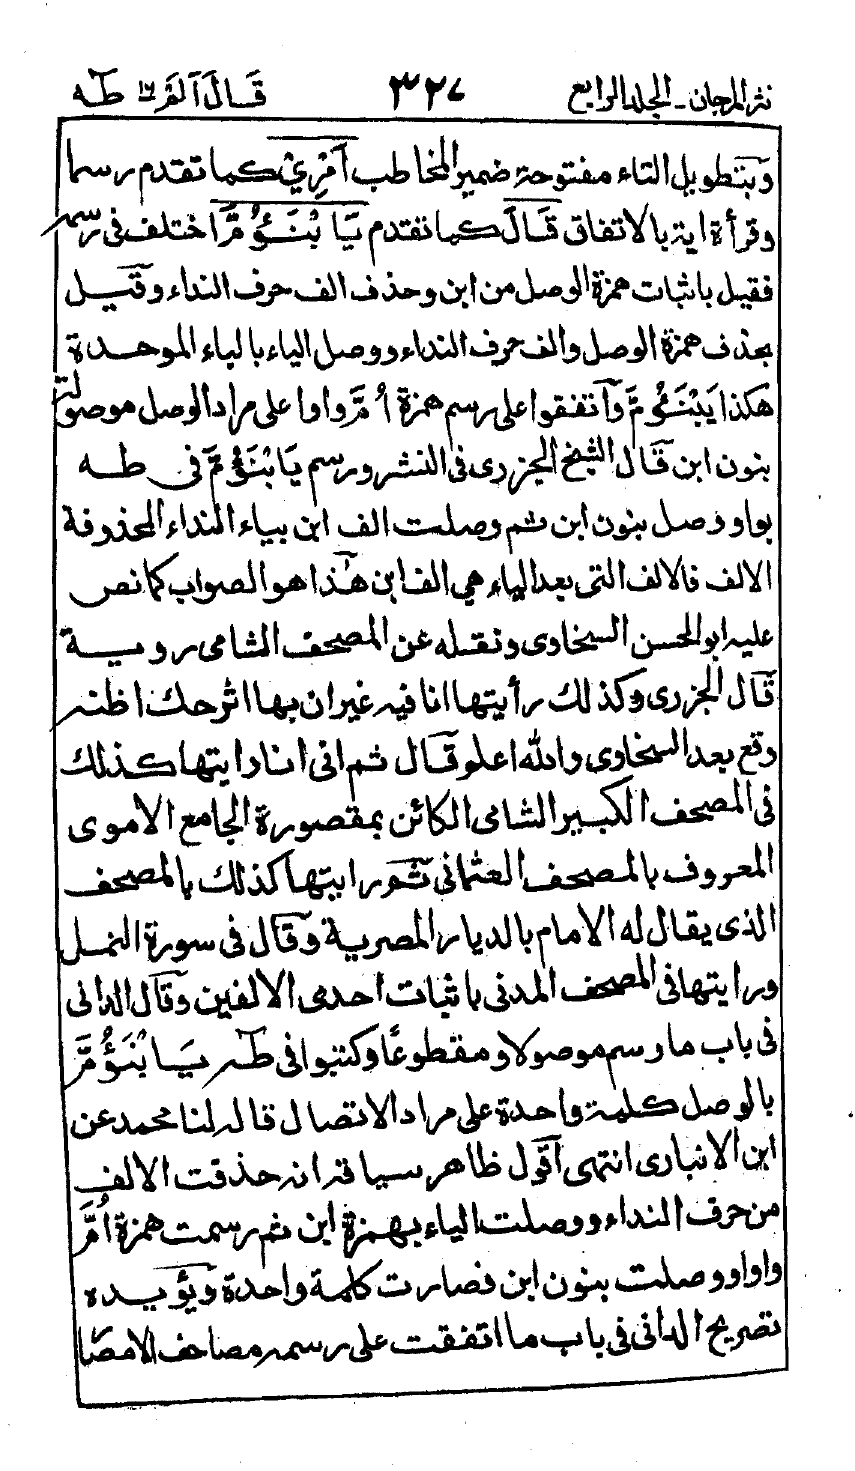 نثر المرجان ـ الجلد الرابع ٣٢٧ قَالَ اَلَمْ ١٦ طٰهٰ
وبتطويل التاء مفتوحة ضمير المخاطب اَمْرِيْ كما تقدم رسما
وقرأة اية بالاتفاق قَالَ كما تقدم يَا بْنَؤُمَّ اختلف فى رسمه
فقيل باثبات همزة الوصل من ابن وحذف الف حرف النداء وقيل
بحذف همزة الوصل والف حرف النداء ووصل الياء بالباء الموحدة
هكذا يَبْنَؤُمَّ واتفقوا على رسم همزة اُمَّ واوا على مراد الوصل موصولة
بنون ابن قال الشيخ الجزرى فى النشر ورسم يَابْنَؤُمَّ فى طه
بواو وصل بنون ابن ثم وصلت الف ابن بياء النداء المحذوفة
الالف فالالف التى بعد الياء هى الف ابن هٰذا هو الصواب كما نص
عليه ابو الحسن السخاوى ونقله عن المصحف الشامى روية
قال الجزرى وكذلك رأيتها انا فيه غير ان بها اثر حك اظنه
وقع بعد السخاوى والله اعلم وقال ثم انى انا رايتها كذلك
فى المصحف الكبير الشامى الكائن بمقصورة الجامع الاموى
المعروف بالمصحف العثمانى ثم رايتها كذلك بالمصحف
الذى يقال له الامام بالديار المصرية وقال فى سورة النمل
ورايتها فى المصحف المدنى باثبات احدى الالفين وقال الدانى
فى باب ما رسم موصولا ومقطوعًا وكتبوا فى طٰه يَا بْنَؤُمَّ
بالوصل كلمة واحدة على مراد الاتصال قاله لنا محمد عن
ابن الانبارى انتهى اقول ظاهر سياقه انه حذفت الالف
من حرف النداء ووصلت الياء بهمزة ابن ثم رسمت همزة اُمَّ
واوا ووصلت بنون ابن فصارت كلمة واحدة ويؤيده
تصريح الدانى فى باب ما اتفقت على رسمه مصاحف الامصا